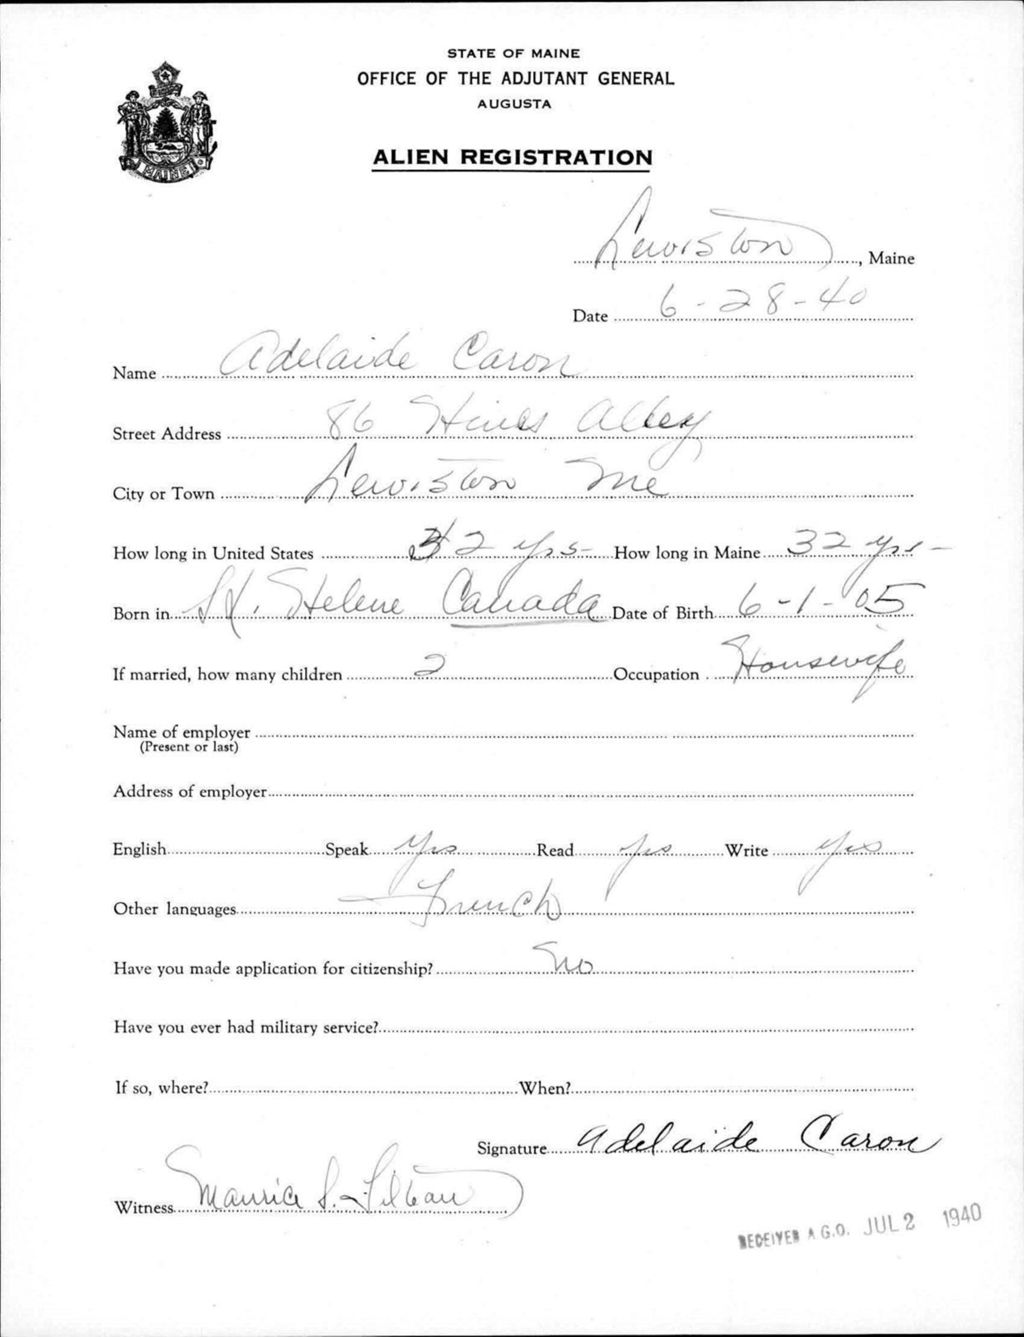 STATE OF MAINE
OFFICE OF THE ADJUTANT GENERAL
AUGUSTA
ALIEN REGISTRATION
MAINE
Lewiston, Maine
Date 6-28-40
Name Adelaide Caron
Street Address 86 Hines Alley
City or Town Lewiston Me
How long in United States 32 yrs- How long in Maine 32 yrs-
Born in St. Helene Canada Date of Birth 6-1-05
If married, how many children 2 Occupation Housewife
Name of employer
(Present or last)
Address of employer
English Speak Yes Read yes Write yes
Other languages French
Have you made application for citizenship? No
Have you ever had military service?
If so, where? When?
Signature Adelaide Caron
Witness Maurice
RECEIVED A.G.O. JUL 2 1940